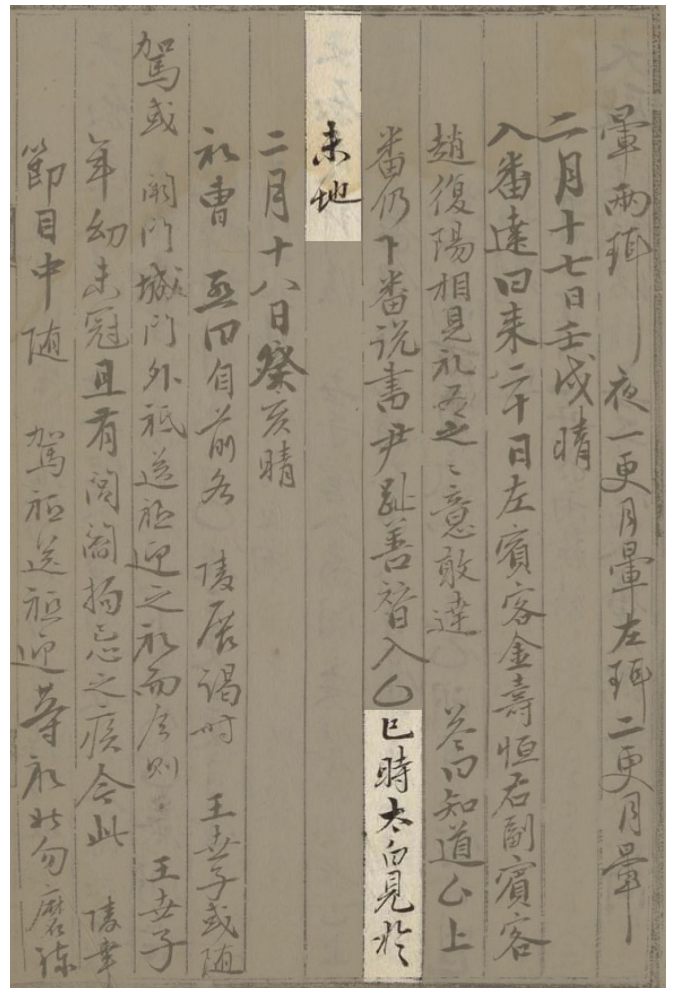 暈兩珥 夜一更月暈左珥二更月暈
二月十七日壬戌晴
入番達曰来二十日左賓客金壽恒右副賓客
趙復陽相見礼爲之〻意敢達 答曰知道〇上
番仍下番說書尹趾善替入〇巳時太白見於
未地
二月十八日癸亥晴
礼曹 啓曰自前各 陵展謁時 王世子或随
駕或 闕門城門外祗送祗迎之礼而今則 王世子
年幼未冠且有閭閻拘忌之疾今此 陵幸
節目中随 駕祗送祗迎等礼姑勿磨鍊